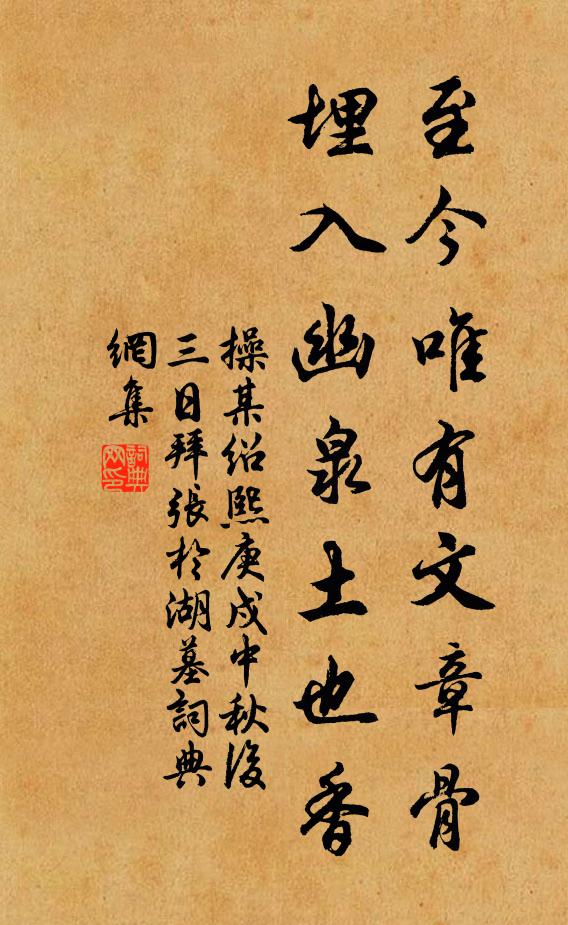 至今唯有文章骨
埋入幽泉土也香
操某绍熙庚戌中秋後
三日拜張於湖墓詞典
網集
詞典
网印